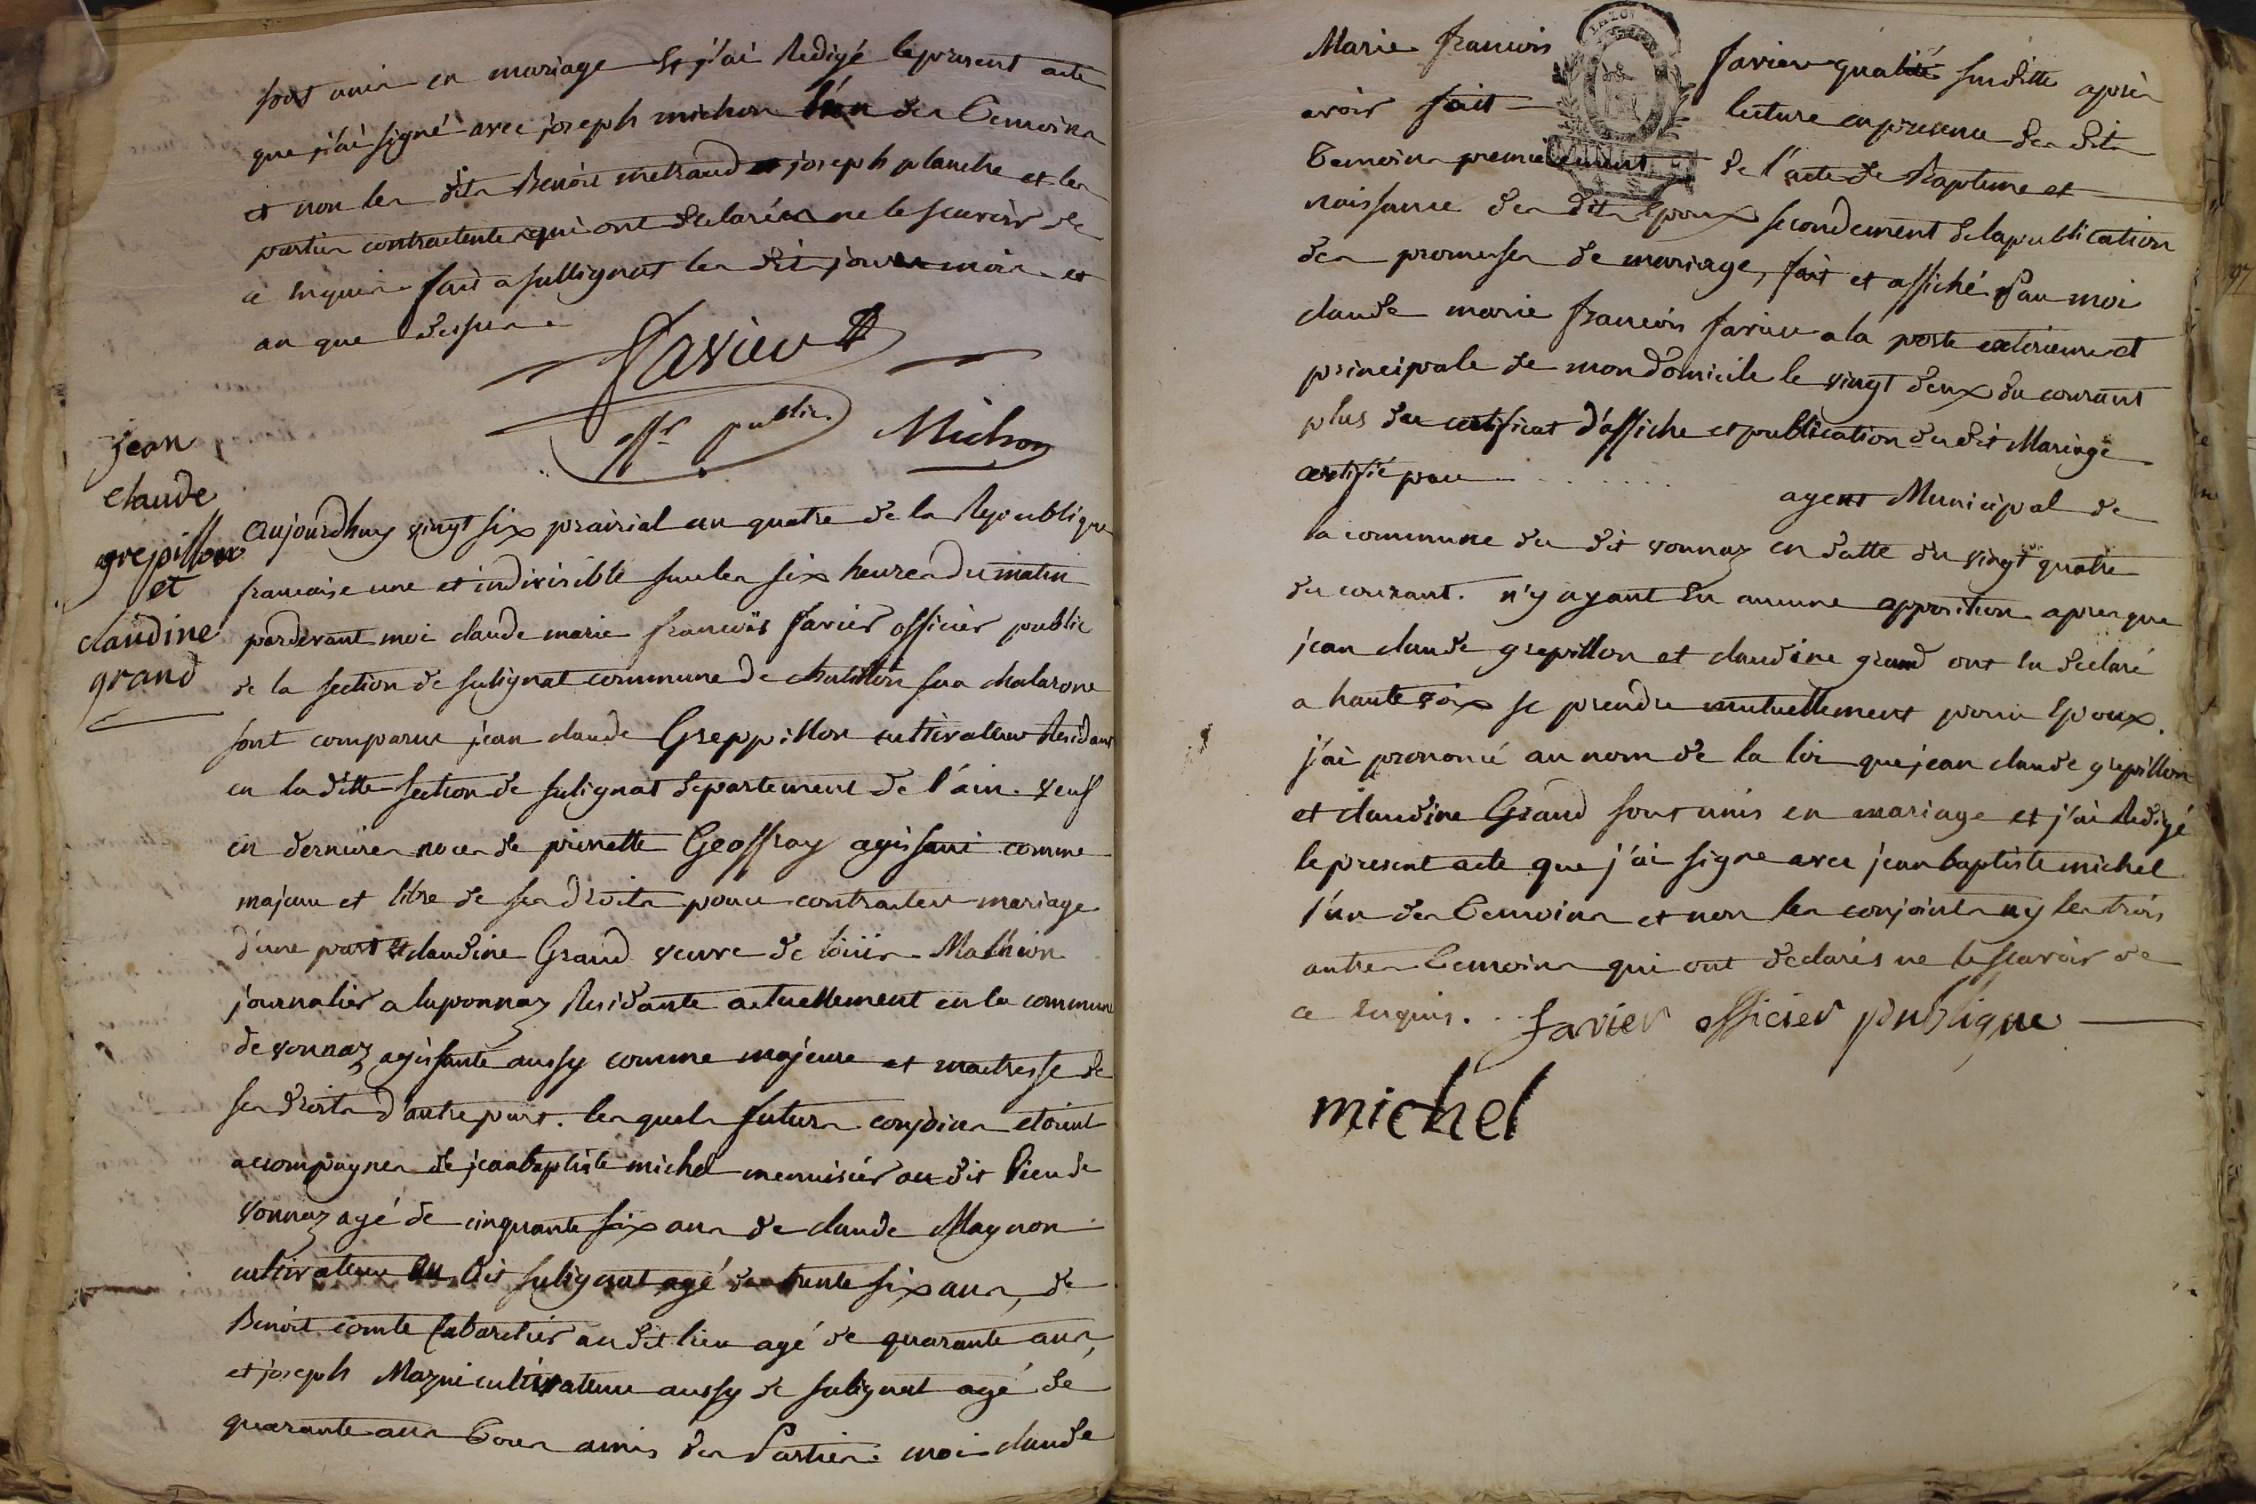 sont unis en mariage et j'ai Redigé le present acte
que j'ai signé avec joseph michon l'un des temoins
et non les dits Benoit metraud et joseph planche et les
parties contractentes qui ont declarés ne le scavoir de
ce enquis fait a sullignat les dits jour mois et
an que dessus
favier
offr public Michon
jean
claude
grepillon
et
claudine
grand
aujourdhuy vingt six prairial an quatre de la Republique
francaise une et indivisible sur les six heures du matin
pardevant moi claude marie francois favier officier public
de la section de sulignat commune de chatillon sur chalarone
sont comparus jean claude Greppillon cultivateur Residant
en la ditte section de sulignat departement de l'ain veuf
en dernieres noces de pierrette Geoffray agissant comme
majeur et libre de ses droits pour contracter mariage
d'une part et claudine Grand veuve de loüis Mathion
journalier a luponnaz Residante actuellement en la commune
de vonnaz agissante aussy comme majeure et maitresse de
ses droits d'autre part. les quels futurs conjoins etoient
accompagnes de jean baptiste michel menuisier au dit lieu de
vonnaz agé de cinquante six ans de claude Magnon
cultivateur au dit sulignat agé de trente six ans, de
Benoit comte Cabaretier au dit lieu agé de quarante ans,
et joseph cultivateur aussy de sulignat agé de
quarante ans tous amis des Parties. moi claude
Marie francois favier qualité susditte après
avoir fait lecture en presence des dits
temoins premierement de l'acte de Bapteme et
naissance des dits Epoux secondement de la publication
des promesses de mariage, fait et affiché par moi
claude marie francois favier a la porte exterieure et
principale de mon domicile le vingt deux du courant
plus du certificat d'affiche et publication du dit Mariage
certifié par . . . . . . . agent Municipal de
la commune du dit vonnaz en datte du vingt quatre
du courant. n'y ayant eu aucune opposition apres que
jean claude grepillon et claudine grand ont eu declaré
a haute voix se prendre mutuellement pour Epoux.
j'ai prononcé au nom de la loi que jean claude grepillon
et claudine Grand sont unis en mariage et j'ai Redigé
le present acte que j'ai signe avec jean baptiste michel
l'un des temoins et non les conjoints ny les trois
autres temoins qui ont declarés ne le scavoir de
ce enquis. . favier officier publique
michel